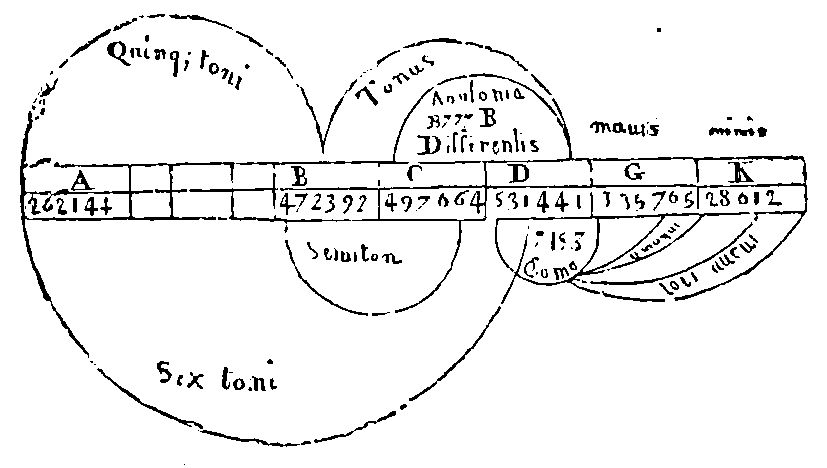 Quinq; toni
Tonus
B
Differentis
maius
minis
A B C D G K
262144 472392 497664 531441 335765 28612
Semiton
7153
Coma
Sex toni